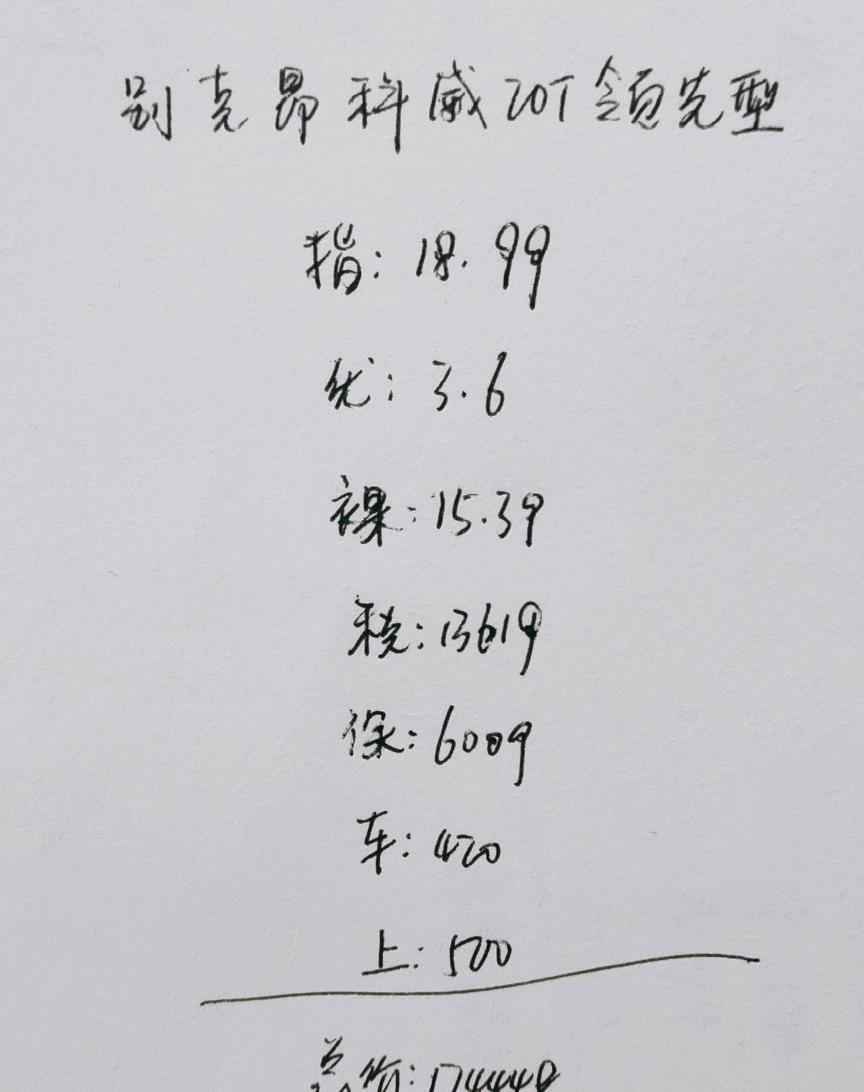 别克昂科威20T领先型
指:18.99
优:3.6
裸:15.39
税:13619
保:6009
车:420
上:500
总价:174448